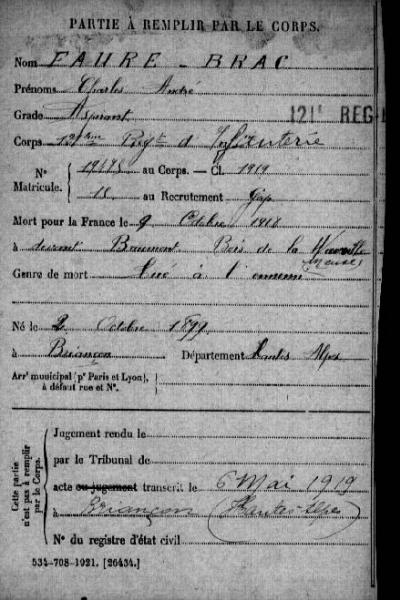 PARTIE À REMPLIR PAR LE CORPS.
Nom FAURE - BRAC
Prénoms Charles André
Grade Aspirant
121e REG
Corps 121ème Régt d'Infanterie
Nº Matricule. { 19478 au Corps. — Cl. 1919
18 au Recrutement Gap
Mort pour la France le 9 Octobre 1918
à devant Beaumont Bois de la
(Meuse)
Genre de mort Tué à l'ennemi
Né le 2 Octobre 1899
à Briançon Département Hautes Alpes
Arrt municipal (pr Paris et Lyon), à défaut rue et Nº.
Cette partie n'est pas à remplir par le Corps.
Jugement rendu le
par le Tribunal de
acte ou jugement transcrit le 6 Mai 1919
à Briançon (Hautes Alpes)
Nº du registre d'état civil
534-708-1921. [26434.]